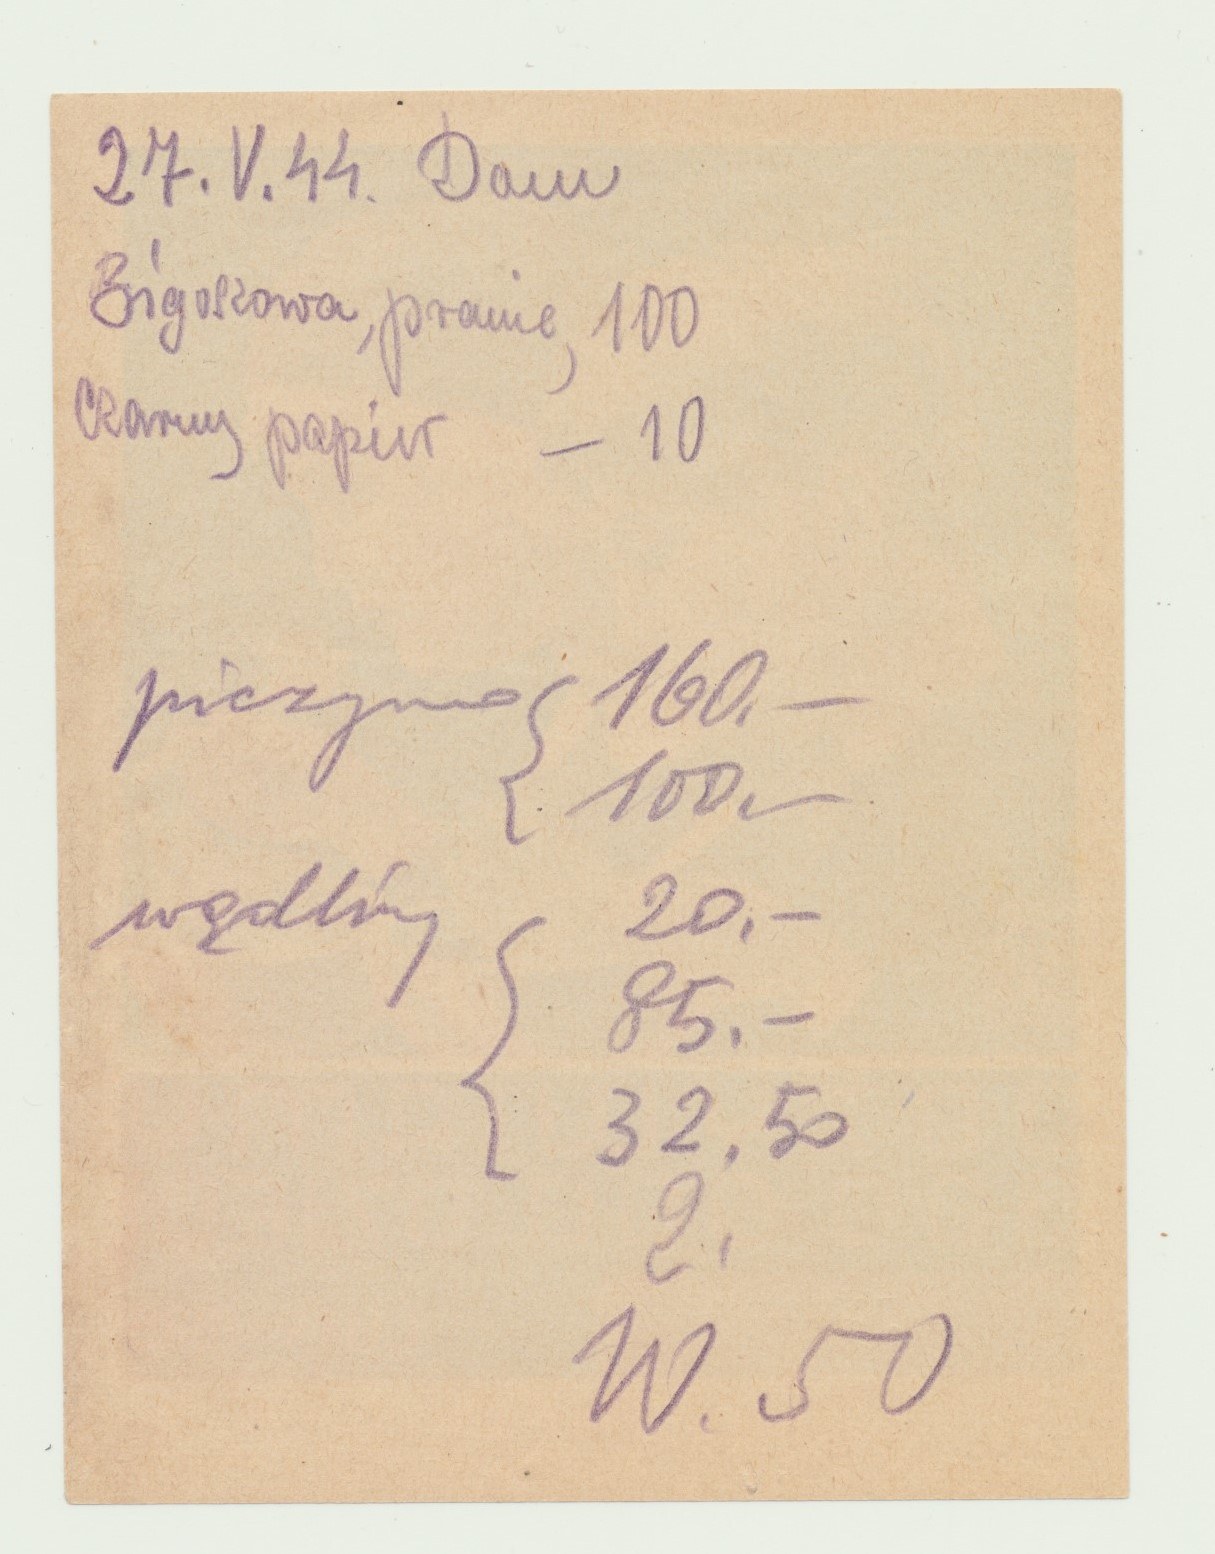 27.V.44. Dom
Bigoszowa, pranie, 100
Czarny papier — 10
pieczywo { 160.—
100.—
wędliny { 20.—
85.—
32,50
2.
W. 50